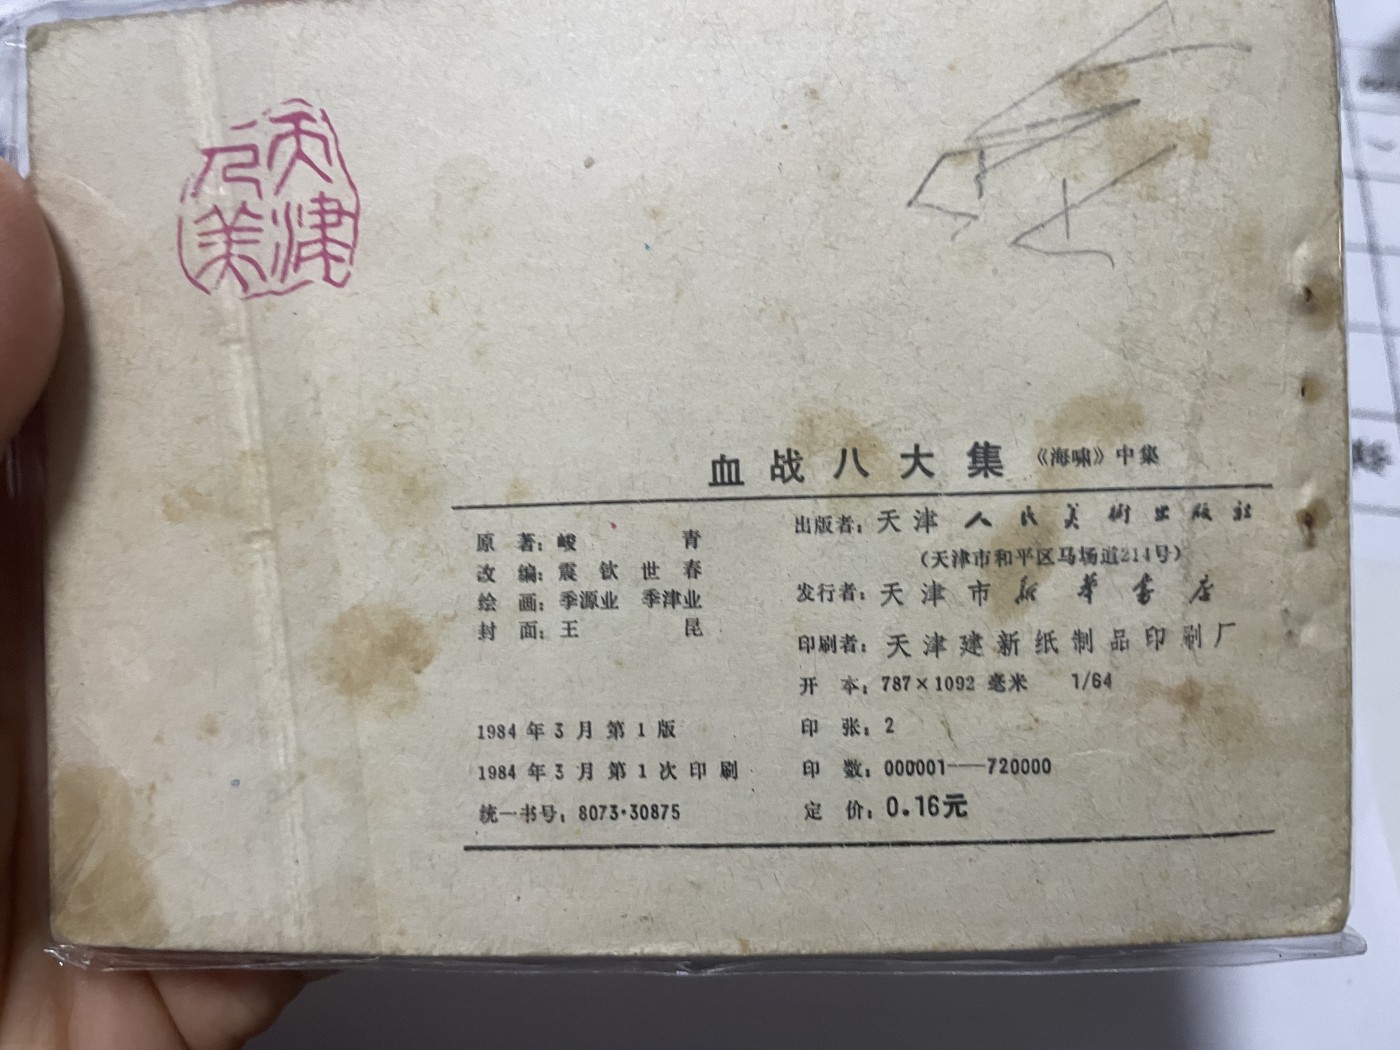 天津
人美
血战八大集 《海啸》中集
原 著：峻 青
改 编：震 钦 世 春
绘 画：季源业 季津业
封 面：王 昆
1984 年 3 月 第 1 版
1984 年 3 月 第 1 次 印 刷
统一书号：8073·30875
出版者：天津人民美術出版社
（天津市和平区马场道214号）
发行者：天津市新华書店
印刷者：天津建新纸制品印刷厂
开 本：787×1092 毫米 1/64
印 张：2
印 数：000001——720000
定 价：0.16元